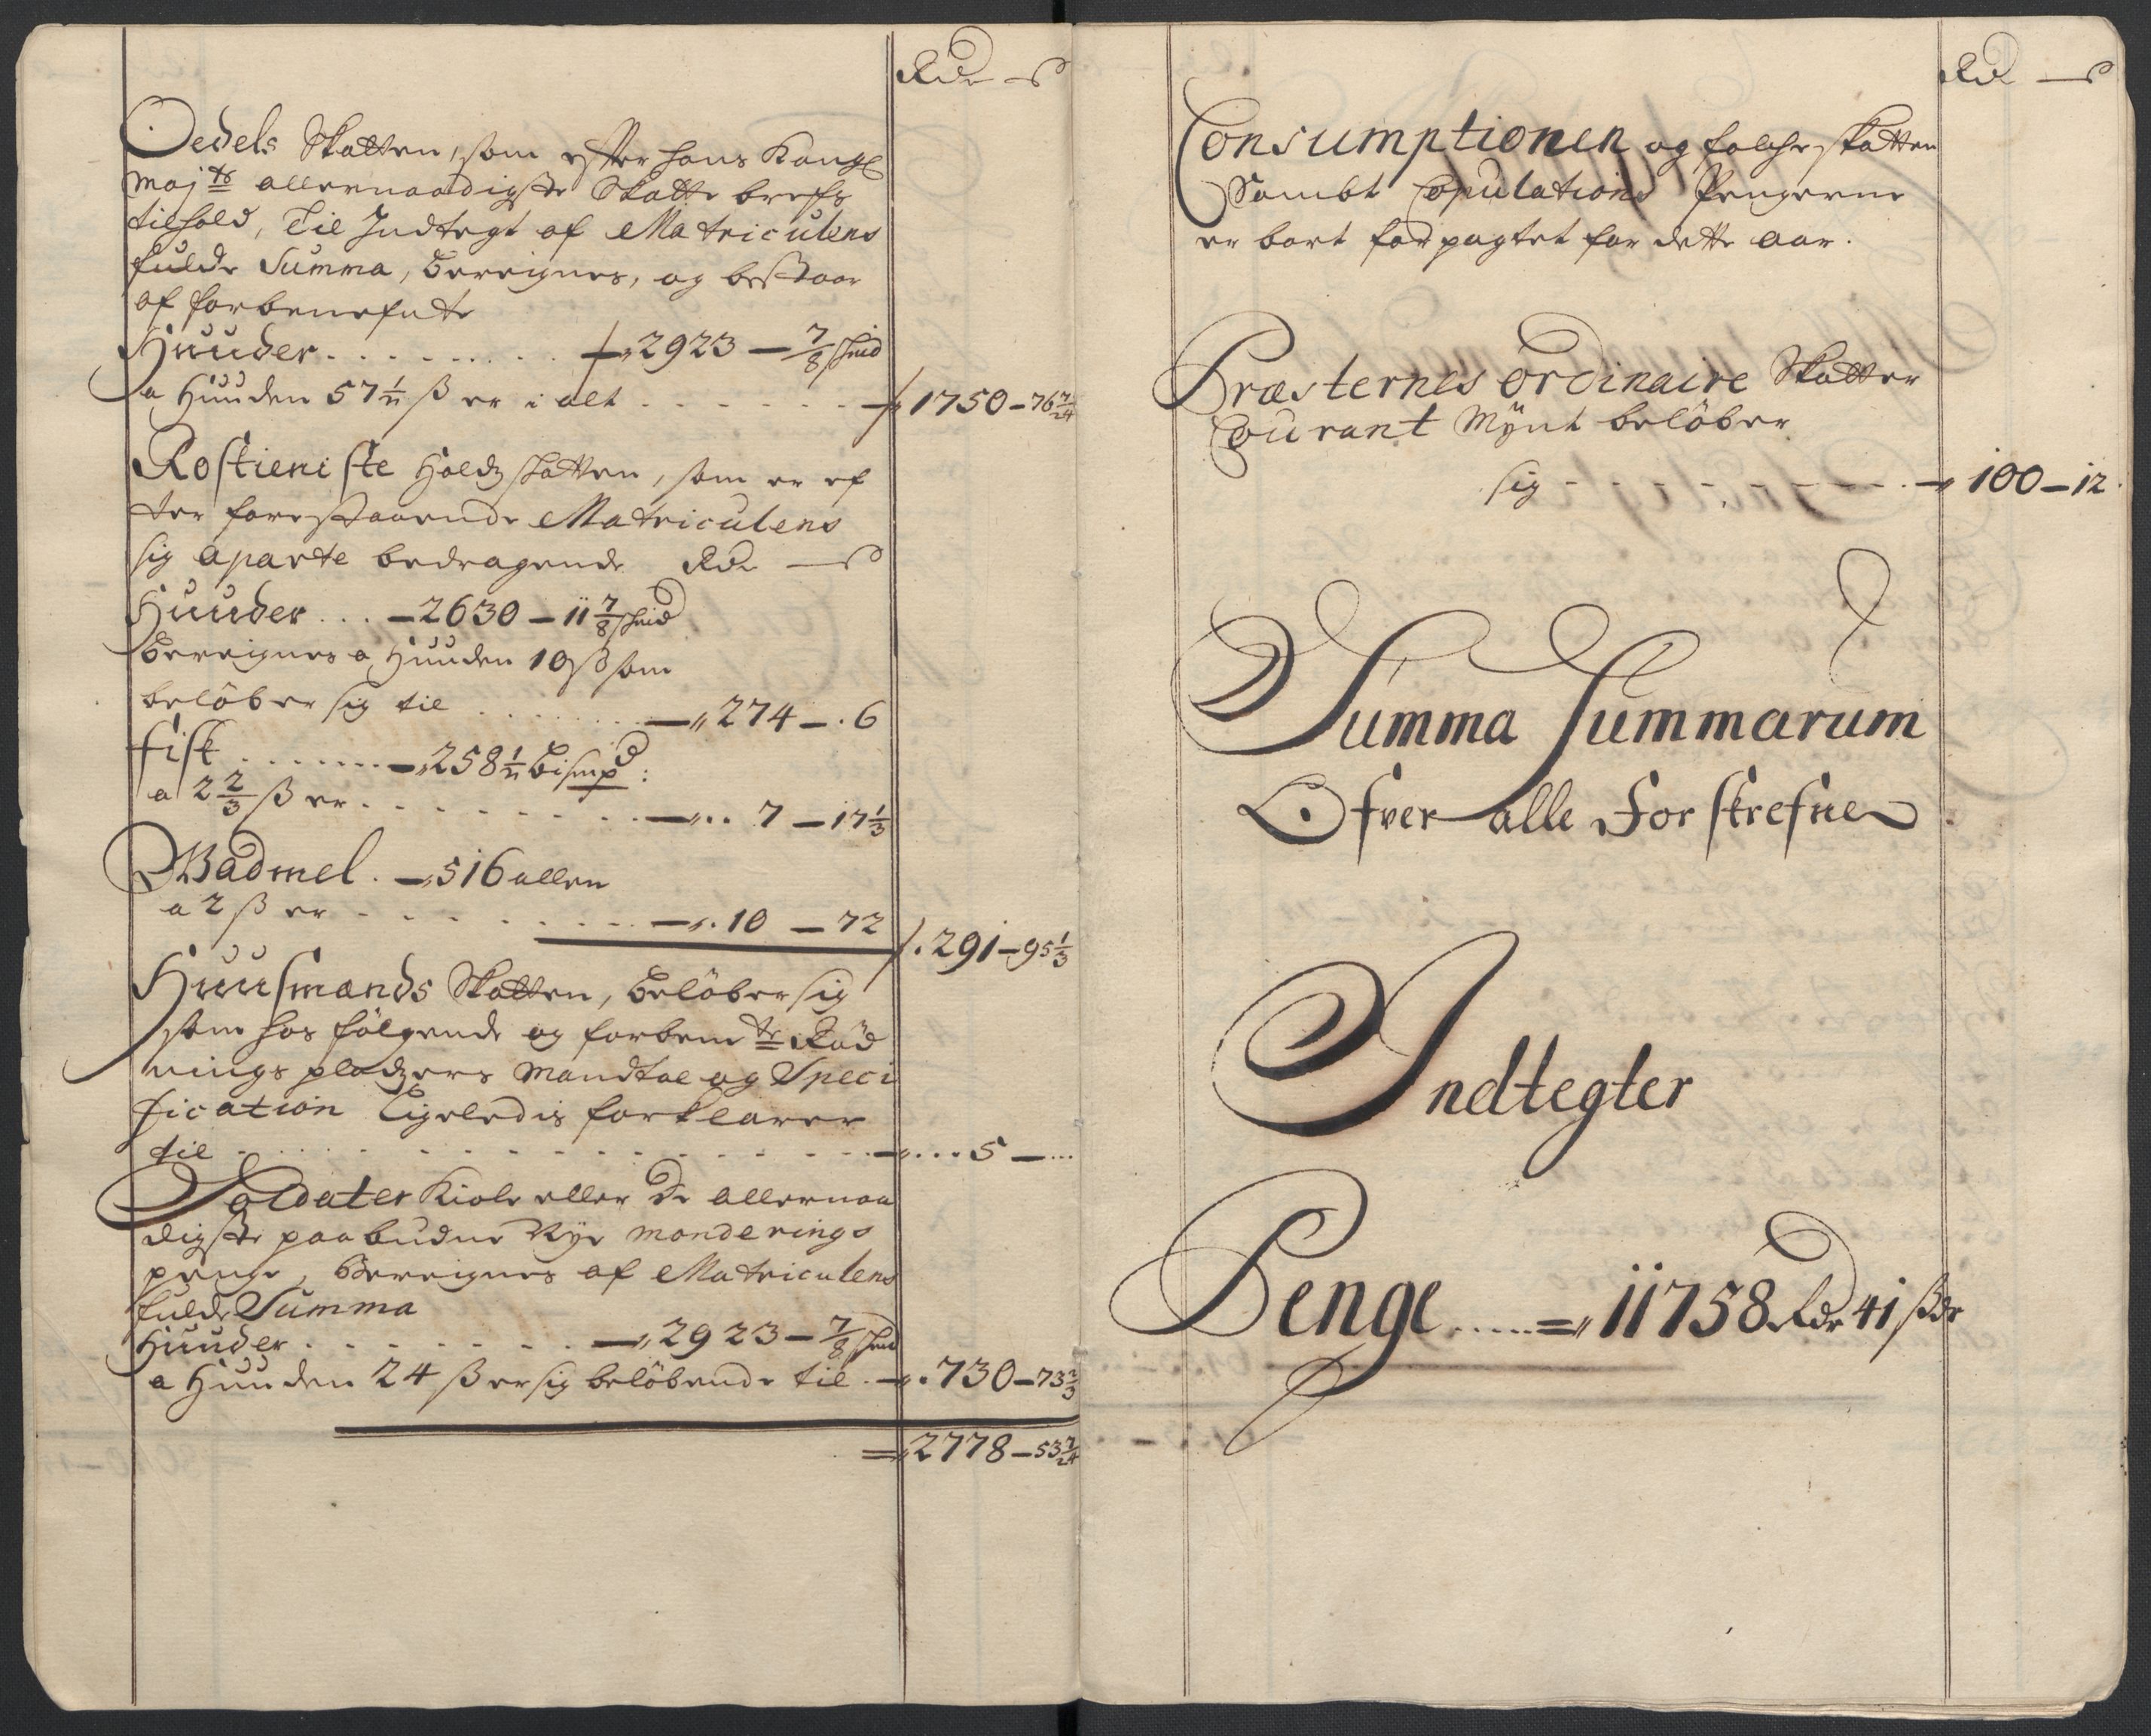 Rdr — ß
Oedels Skatten, som efter hans Kongl
Maj:ts allernaadigste Skatte brefs
tilhold, Til Indtegt af Matriculens
fulde Summa, Bereignes, og bestaar
af forbenefnte
Huuder . . . . . . . . . 2923 — 7/8 skind
a Huuden 57 1/2 ß er i alt . . . . . . . 1750 — 76 7/24
Rostieniste Holdz skatten, som er ef
ter forestaaende Matriculens
sig aparte bedragende Rdr — ß
Huuder . . . — 2630 — 11 7/8 skind
Bereignes a Huuden 10 ß som
beløber sig til . . . . . . . — 274 — . 6
fisk . . . . . . . — 258 1/2 bismp:
a 2 2/3 ß er . . . . . . . — . . 7 — 17 1/3
Wadmel . — 516 allen
a 2 ß er . . . . . . . — . 10 — 72
. 291 — 95 1/3
Huusmænds Skatten, beløber sig
som hos følgende og forbem:te Rød
nings pladzers Mandtal og Speci
fication Ligeledis forklarer
til . . . . . . . . . . . . . . . 5 — . . .
Soldater Kiole eller De allernaa
digste paabudne Nye monderings
penge, Bereignes af Matriculens
fulde Summa
Huuder . . . . . . . — 2923 — 7/8 skind
a Huuden 24 ß er sig beløbende til . — . 730 — 73 2/3
= 2778 — 53 7/24
Rdr — ß
Consumptionen og folche skatten
Sambt Copulations Pengerne
er bort forpagtet for dette aar.
Præsternes ordinaire Skatter
Courant Mynt beløber
sig - - - - - - - - - — 100 — 12
Summa Summarum
Ofver alle Forskrefne
Indtegter
Penge . . . . . = 11758 Rdr 41 ßdr